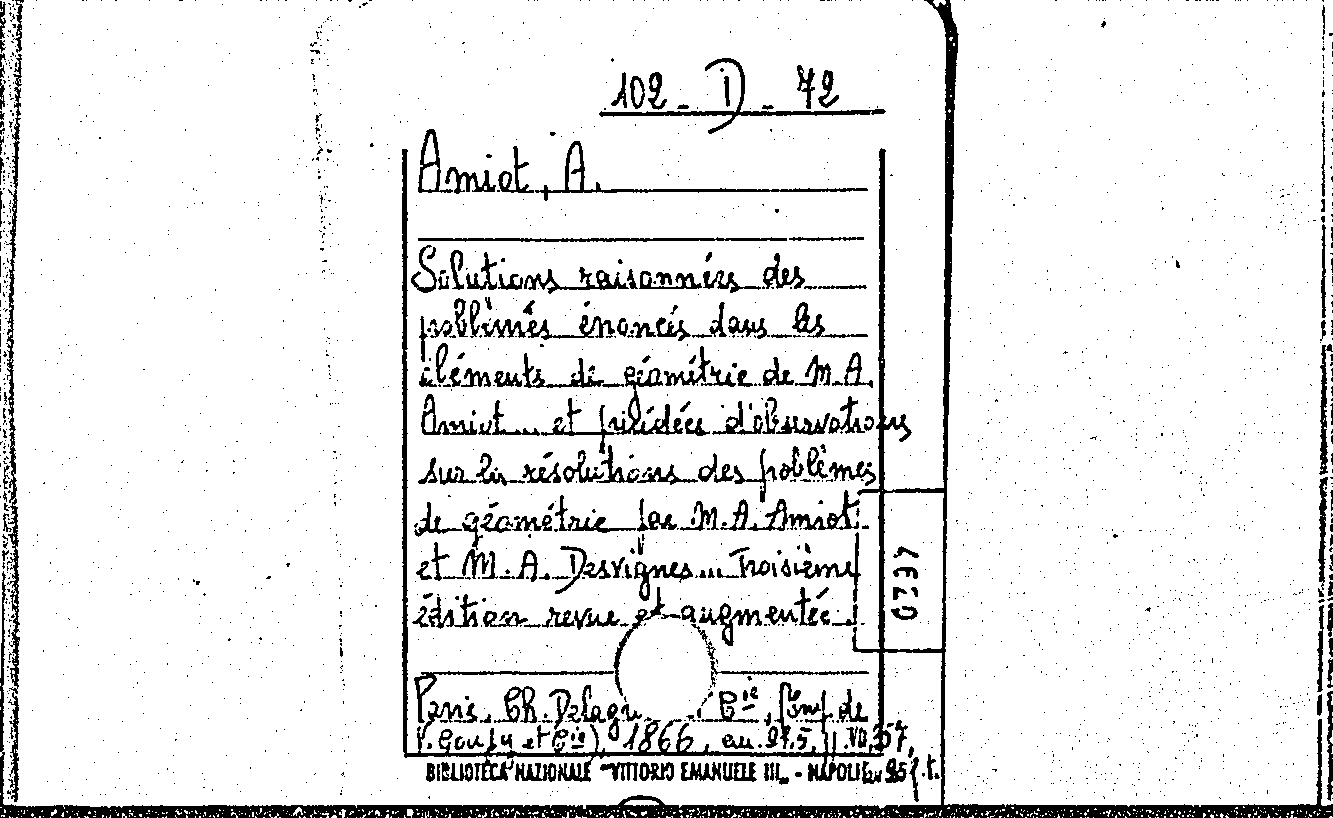 102 - D - 72
Amiot, A.
Solutions raisonnées des
problèmés énoncés dans les
éléments de géométrie de M.A.
Amiot... et précédées d'observations
sur les résolutions des problèmes
de géométrie par M.A. Amiot
et M. A. Desvignes... Troisième
édition revue et augmentée.
Paris, Ch. Delagr Cie, (Imp. de
P. Goupy et Cie), 1866, cm. 21,5, pp. VII, 357,
BIBLIOTECA NAZIONALE "VITTORIO EMANUELE III" - NAPOLI f.t.